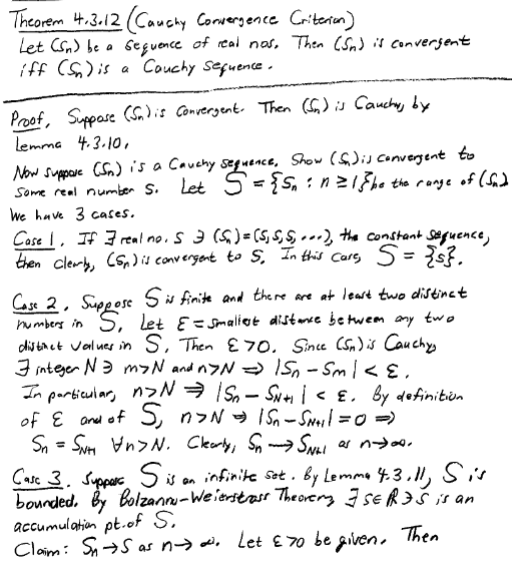 Theorem 4.3.12 (Cauchy Convergence Criterion)
Let (Sn) be a sequence of real nos. Then (Sn) is convergent
iff (Sn) is a Cauchy sequence.
Proof. Suppose (Sn) is convergent. Then (Sn) is Cauchy by
Lemma 4.3.10.
Now suppose (Sn) is a Cauchy sequence. Show (Sn) is convergent to
some real number s. Let S = {Sn : n ≥ 1} be the range of (Sn)
We have 3 cases.
Case 1. If ∃ real no. s ∋ (Sn) = (s,s,s,...), the constant sequence,
then clearly, (Sn) is convergent to s. In this case, S = {s}.
Case 2. Suppose S is finite and there are at least two distinct
numbers in S. Let ε = smallest distance between any two
distinct values in S. Then ε>0. Since (Sn) is Cauchy,
∃ integer N ∋ m>N and n>N ⇒ |Sn - Sm| < ε.
In particular, n>N ⇒ |Sn - SN+1| < ε. By definition
of ε and of S, n>N ⇒ |Sn - SN+1| = 0 ⇒
Sn = SN+1 ∀n>N. Clearly, Sn → SN+1 as n→∞.
Case 3. Suppose S is an infinite set. By Lemma 4.3.11, S is
bounded. By Bolzanno-Weierstrass Theorem, ∃ s∈R ∋ s is an
accumulation pt. of S.
Claim: Sn → s as n→∞. Let ε>0 be given. Then